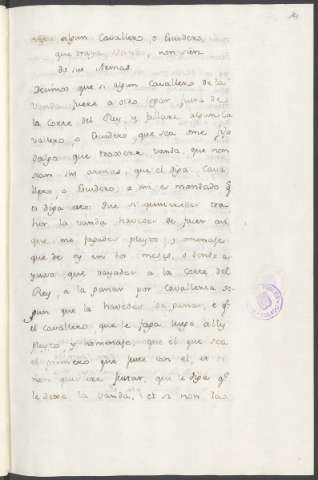 algun Cavallero o Escudero,
que traya Vanda, non sien
do sus Armas.
Decimos que si algun Cavallero de la
Vanda fuere a otro lugar fuera de
la Corte del Rey, y fallare algun Ca
vallero, o Escudero, que sea ome fijo
dalgo que traxiere vanda, que non
sean sus armas, que el diga Cava
llero o Escudero, a mi es mandado q.
os diga esto: Que si quisieredes tra
her la vanda havedes de facer asi,
que me fagades pleyto, y menage
que de oy en dos meses, o donde a
yuso que vayades a la Corte del
Rey, a la ganar por Cavalleria se
gun que la havedes de ganar, e q.
el cavallero que le faga luego alli
pleyto y homenage, que el que sea
el primero que juste con el, et si
non quisiere jurar, que le diga q.
le dexe la vanda, et si non las